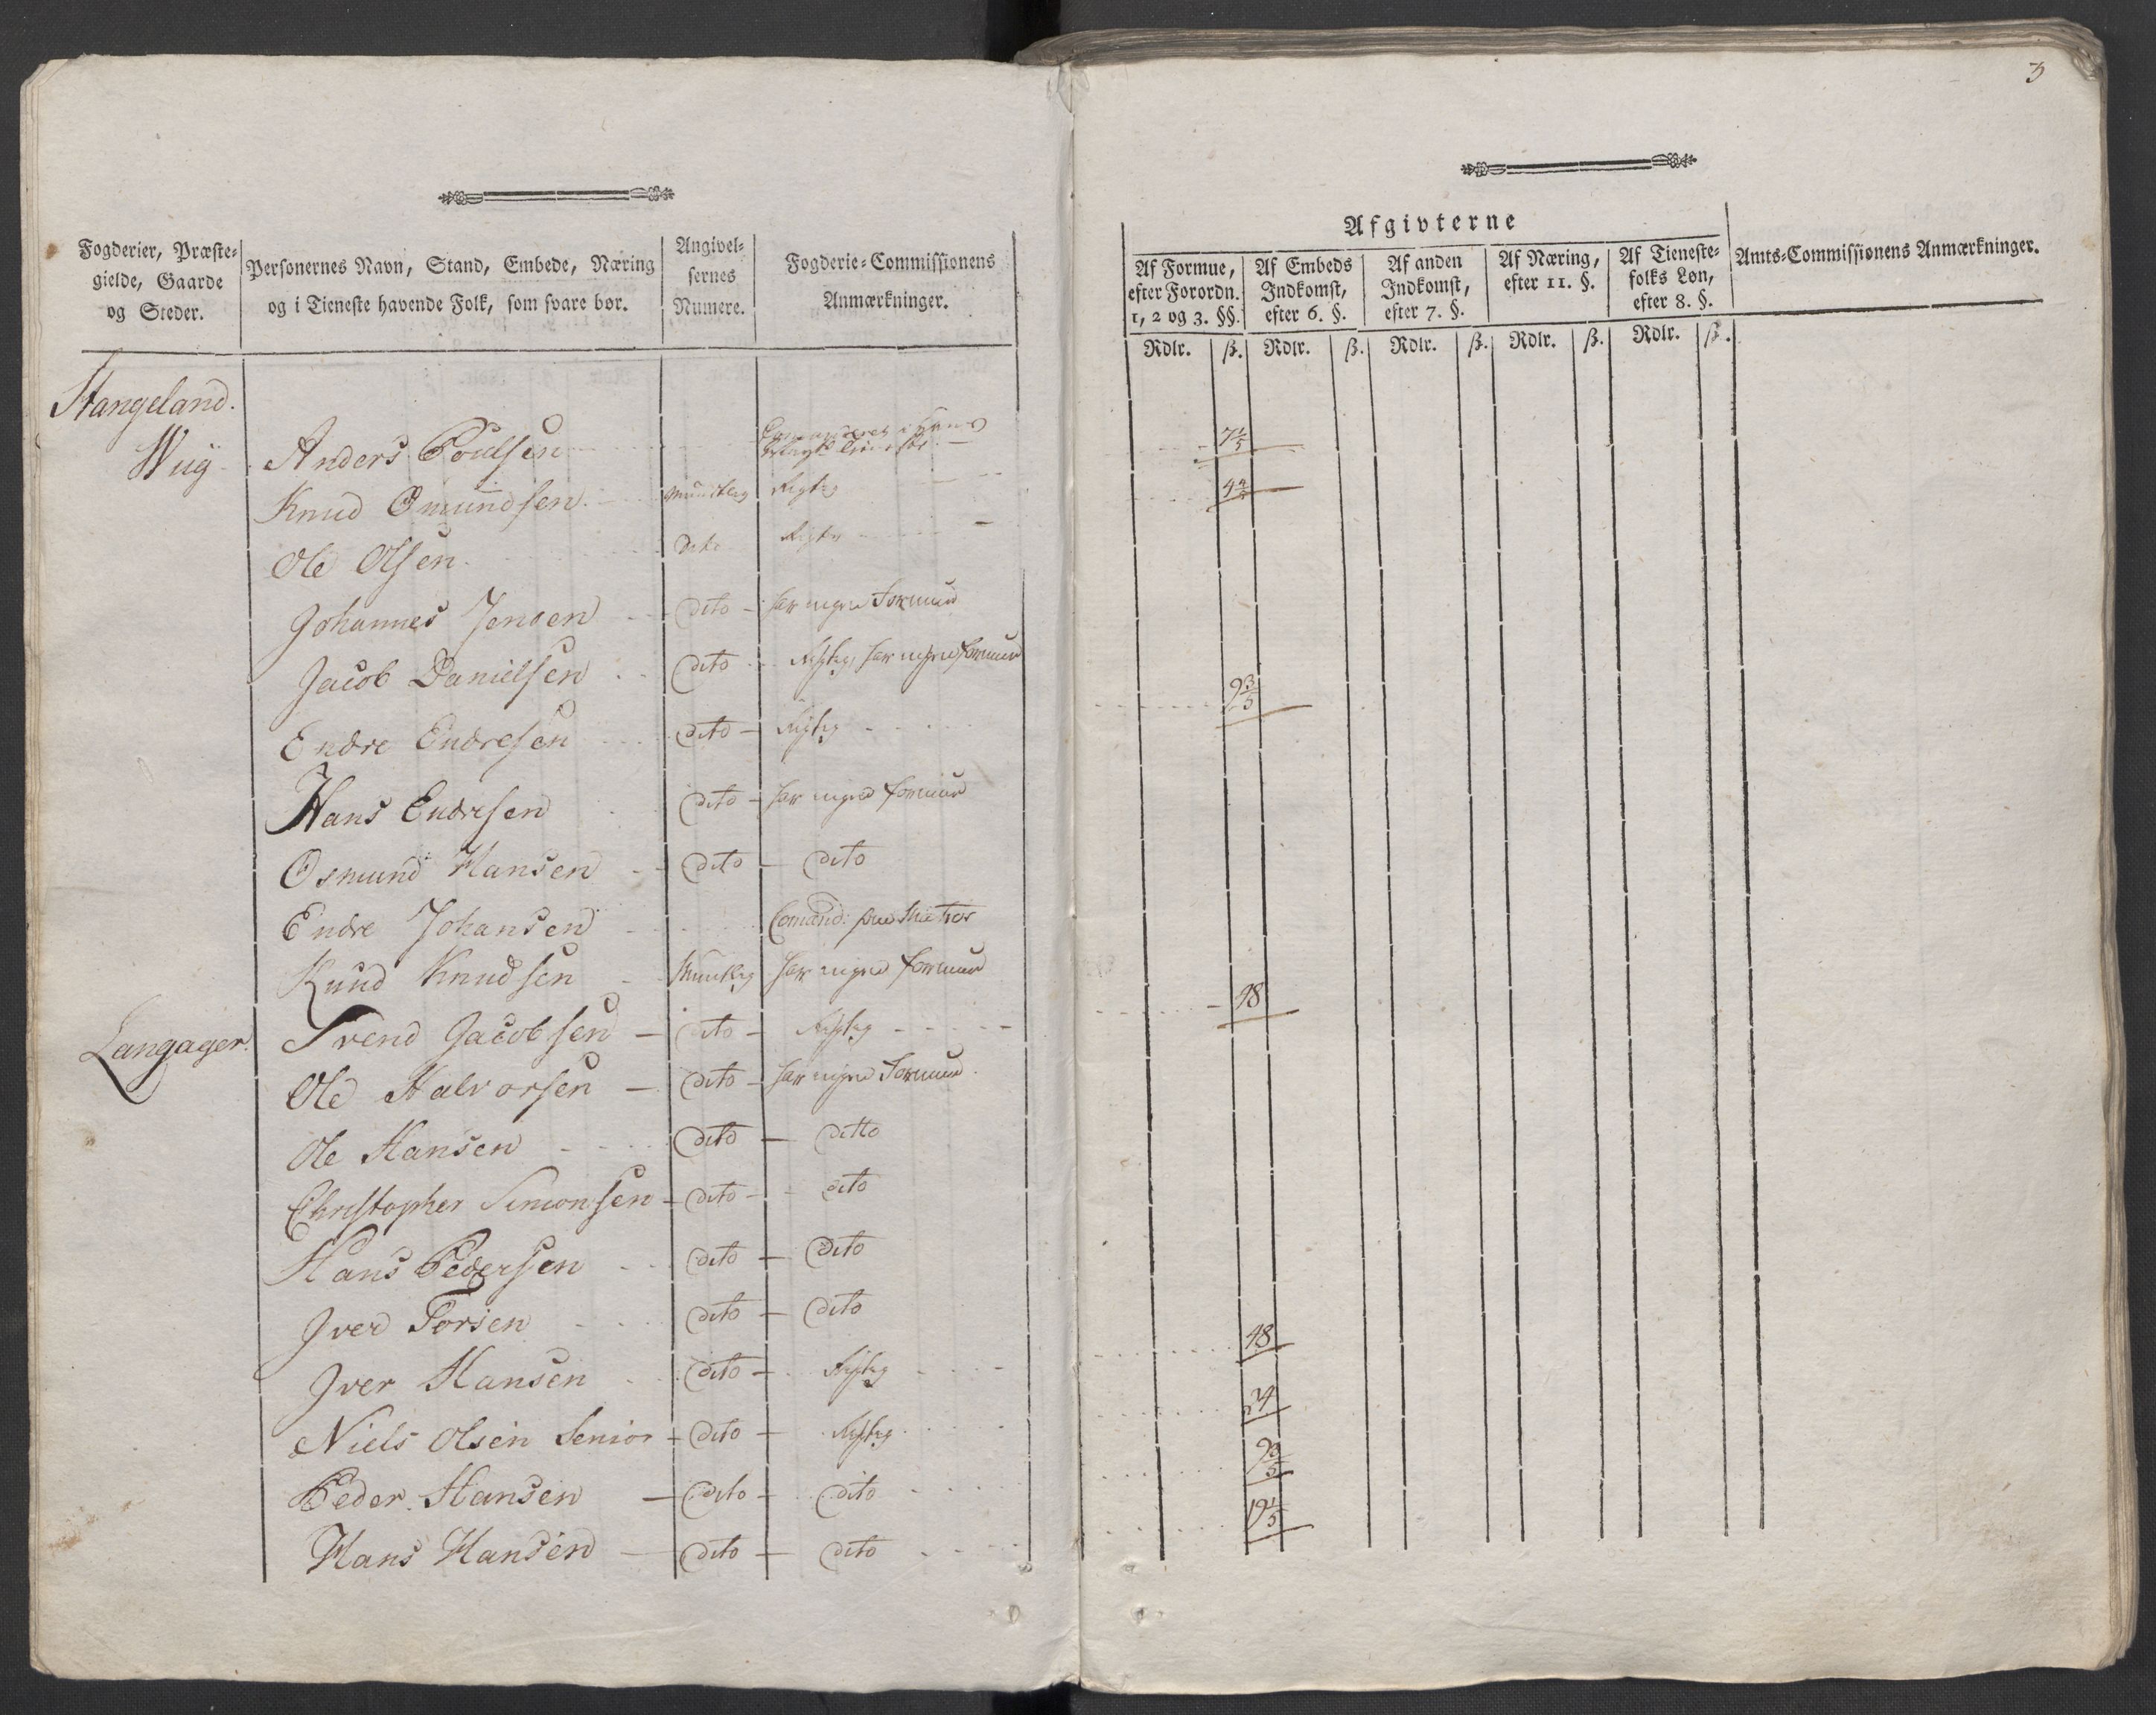 3
Fogderier, Præste-
gielde, Gaarde
og Steder.
Personernes Navn, Stand, Embede, Næring
og i Tieneste havende Folk, som svare bør.
Angivel-
sernes
Numere.
Fogderie-Commissionens
Anmærkninger.
Afgivterne
Af Formue,
efter Forordn.
1, 2 og 3. §§.
Af Embeds
Indkomst,
efter 6. §.
Af anden
Indkomst,
efter 7. §.
Af Næring,
efter 11. §.
Af Tieneste-
folks Løn,
efter 8. §.
Amts-Commissionens Anmærkninger.
Rdlr. ß. Rdlr. ß. Rdlr. ß. Rdlr. ß. Rdlr. ß.
Stangeland.
Wiig Anders Poulsen 7 1/5
Knud Omundsen Mundtlig Rigtig 4 4/5
Ole Olsen Dito Rigtig
Johannes Jensen Dito har ingen Formue
Jacob Danielsen Dito Rigtig, har ingen formue
Endre Endresen Dito Rigtig 9 3/5
Hans Endresen Dito har ingen formue
Osmund Hansen Dito Dito
Endre Johansen Comand:
Knud Knudsen Mundtlig har ingen formue
Langager. Svend Jacobsen Dito Rigtig 48
Ole Halvorsen Dito har ingen Formue
Ole Hansen Dito Ditto
Christopher Simonsen Dito Dito
Hans Pedersen Dito Dito
Iver Torsen Dito Dito
Iver Hansen Dito Rigtig 48
Niels Olsen Senior Dito Rigtig 24
Peder Hansen Dito Dito 9 3/5
Hans Hansen Dito Dito 19 1/5